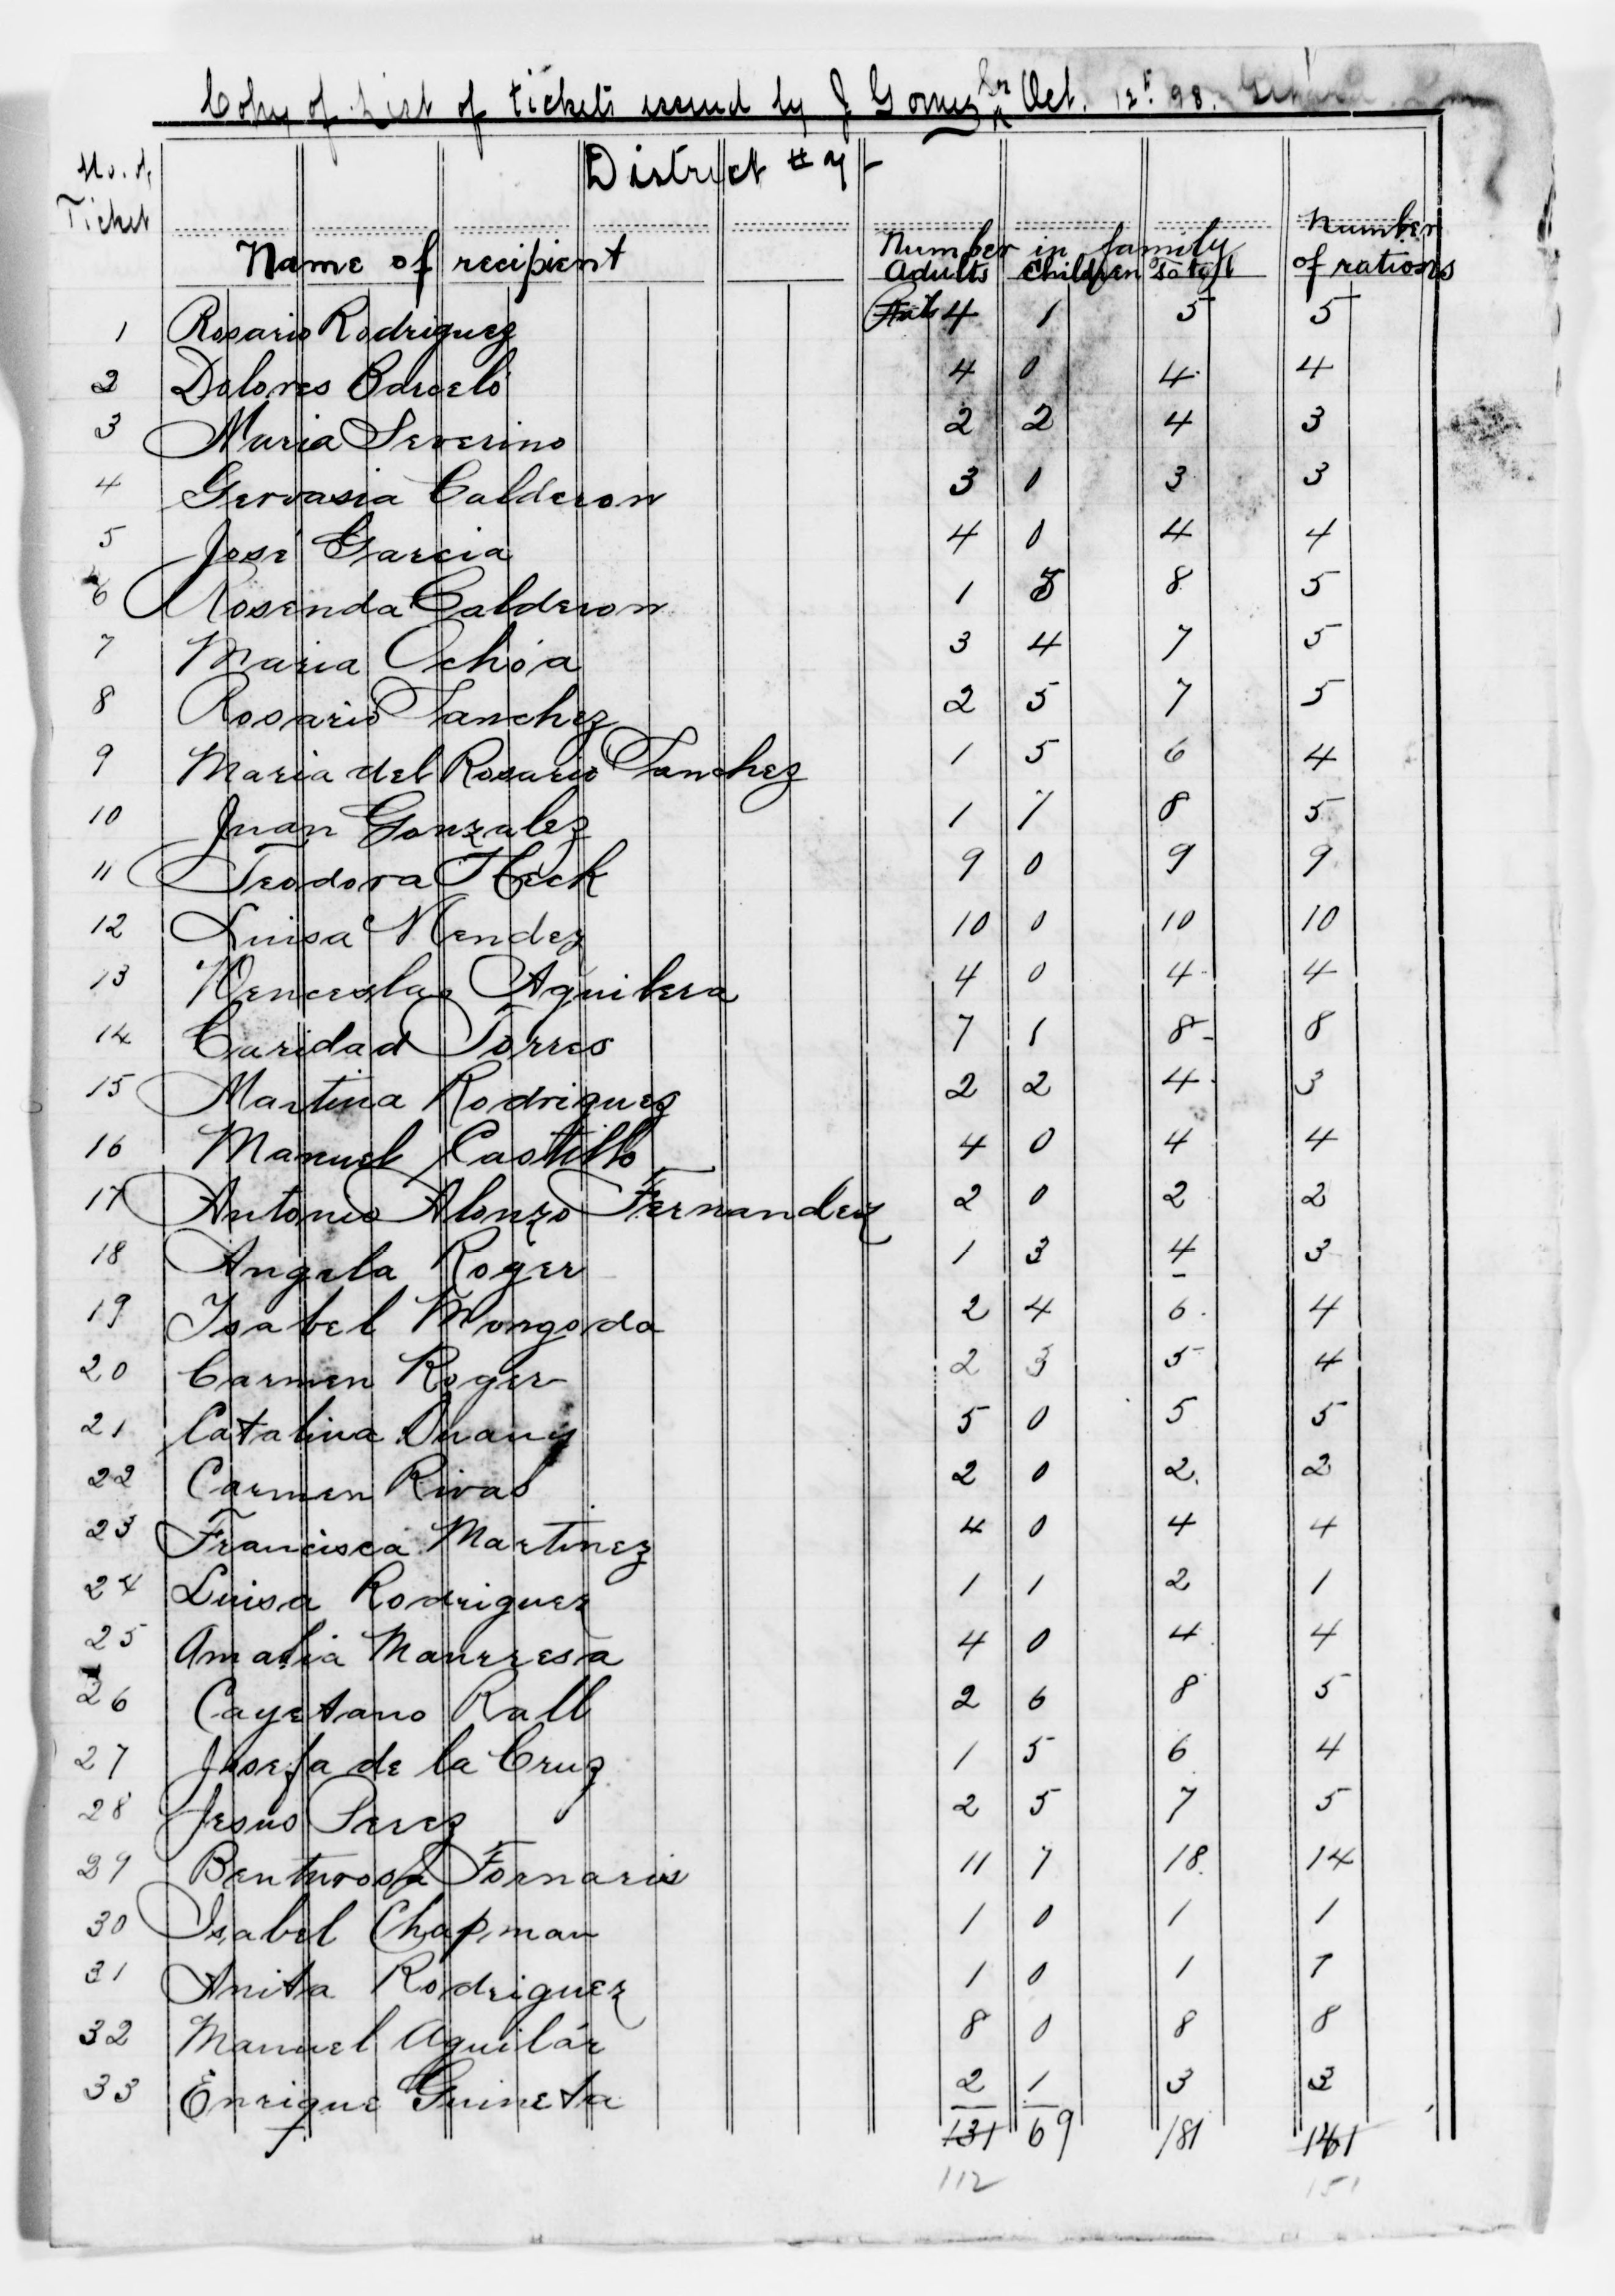 Copy of List of tickets issued by J Gomez for Oct. 12th 98.
District # 7
No. of Ticket
Name of recipient
Number in family
Number of rations
Adults Children Total
1 Rosario Rodriguez 4 1 5 5
2 Dolores Barceló 4 0 4 4
3 Maria Severino 2 2 4 3
4 Gervasia Calderon 3 0 3 3
5 José Garcia 4 0 4 4
6 Rosenda Calderon 1 7 8 5
7 Maria Ochóa 3 4 7 5
8 Rosario Sanchez 2 5 7 5
9 Maria del Rosario Sanchez 1 5 6 4
10 Juan Gonzalez 1 7 8 5
11 Teodora Heck 9 0 9 9
12 Luisa Mendez 10 0 10 10
13 Wenceslao Aguilera 4 0 4 4
14 Caridad Torres 7 1 8 8
15 Martina Rodriguez 2 2 4 3
16 Manuel Castillo 4 0 4 4
17 Antonio Alonzo Fernandez 2 0 2 2
18 Angela Roger 1 3 4 3
19 Isabel Mongoda 2 4 6 4
20 Carmen Roger 2 3 5 4
21 Catalina Duany 5 0 5 5
22 Carmen Rivas 2 0 2 2
23 Francisca Martinez 4 0 4 4
24 Luisa Rodriguez 1 1 2 1
25 Amalia Manrresa 4 0 4 4
26 Cayetano Rall 2 6 8 5
27 Josefa de la Cruz 1 5 6 4
28 Jesus Perez 2 5 7 5
29 Benturosa Fornaris 11 7 18 14
30 Isabel Chapman 1 0 1 1
31 Anita Rodriguez 1 0 1 1
32 Manuel Aguilár 8 0 8 8
33 Enrique Guineta 2 1 3 3
131 69 181 141
112 151